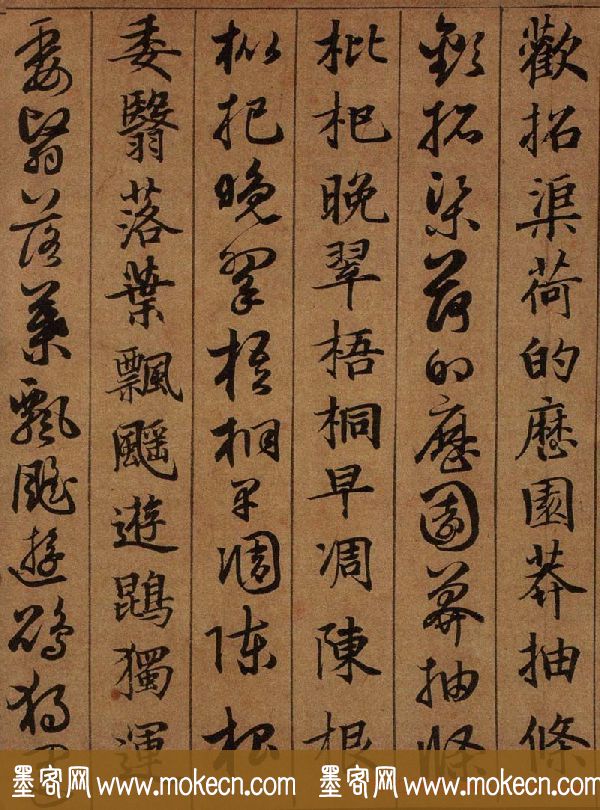 歡招渠荷的歷園莽抽條
歡招渠荷的歷園莽抽條
枇杷晚翠梧桐早凋陳根
枇杷晚翠梧桐早凋陳根
委翳落葉飄颻遊鵾獨運
委翳落葉飄颻遊鵾獨運
墨客网 www.mokecn.com 墨客网 www.mokecn.com